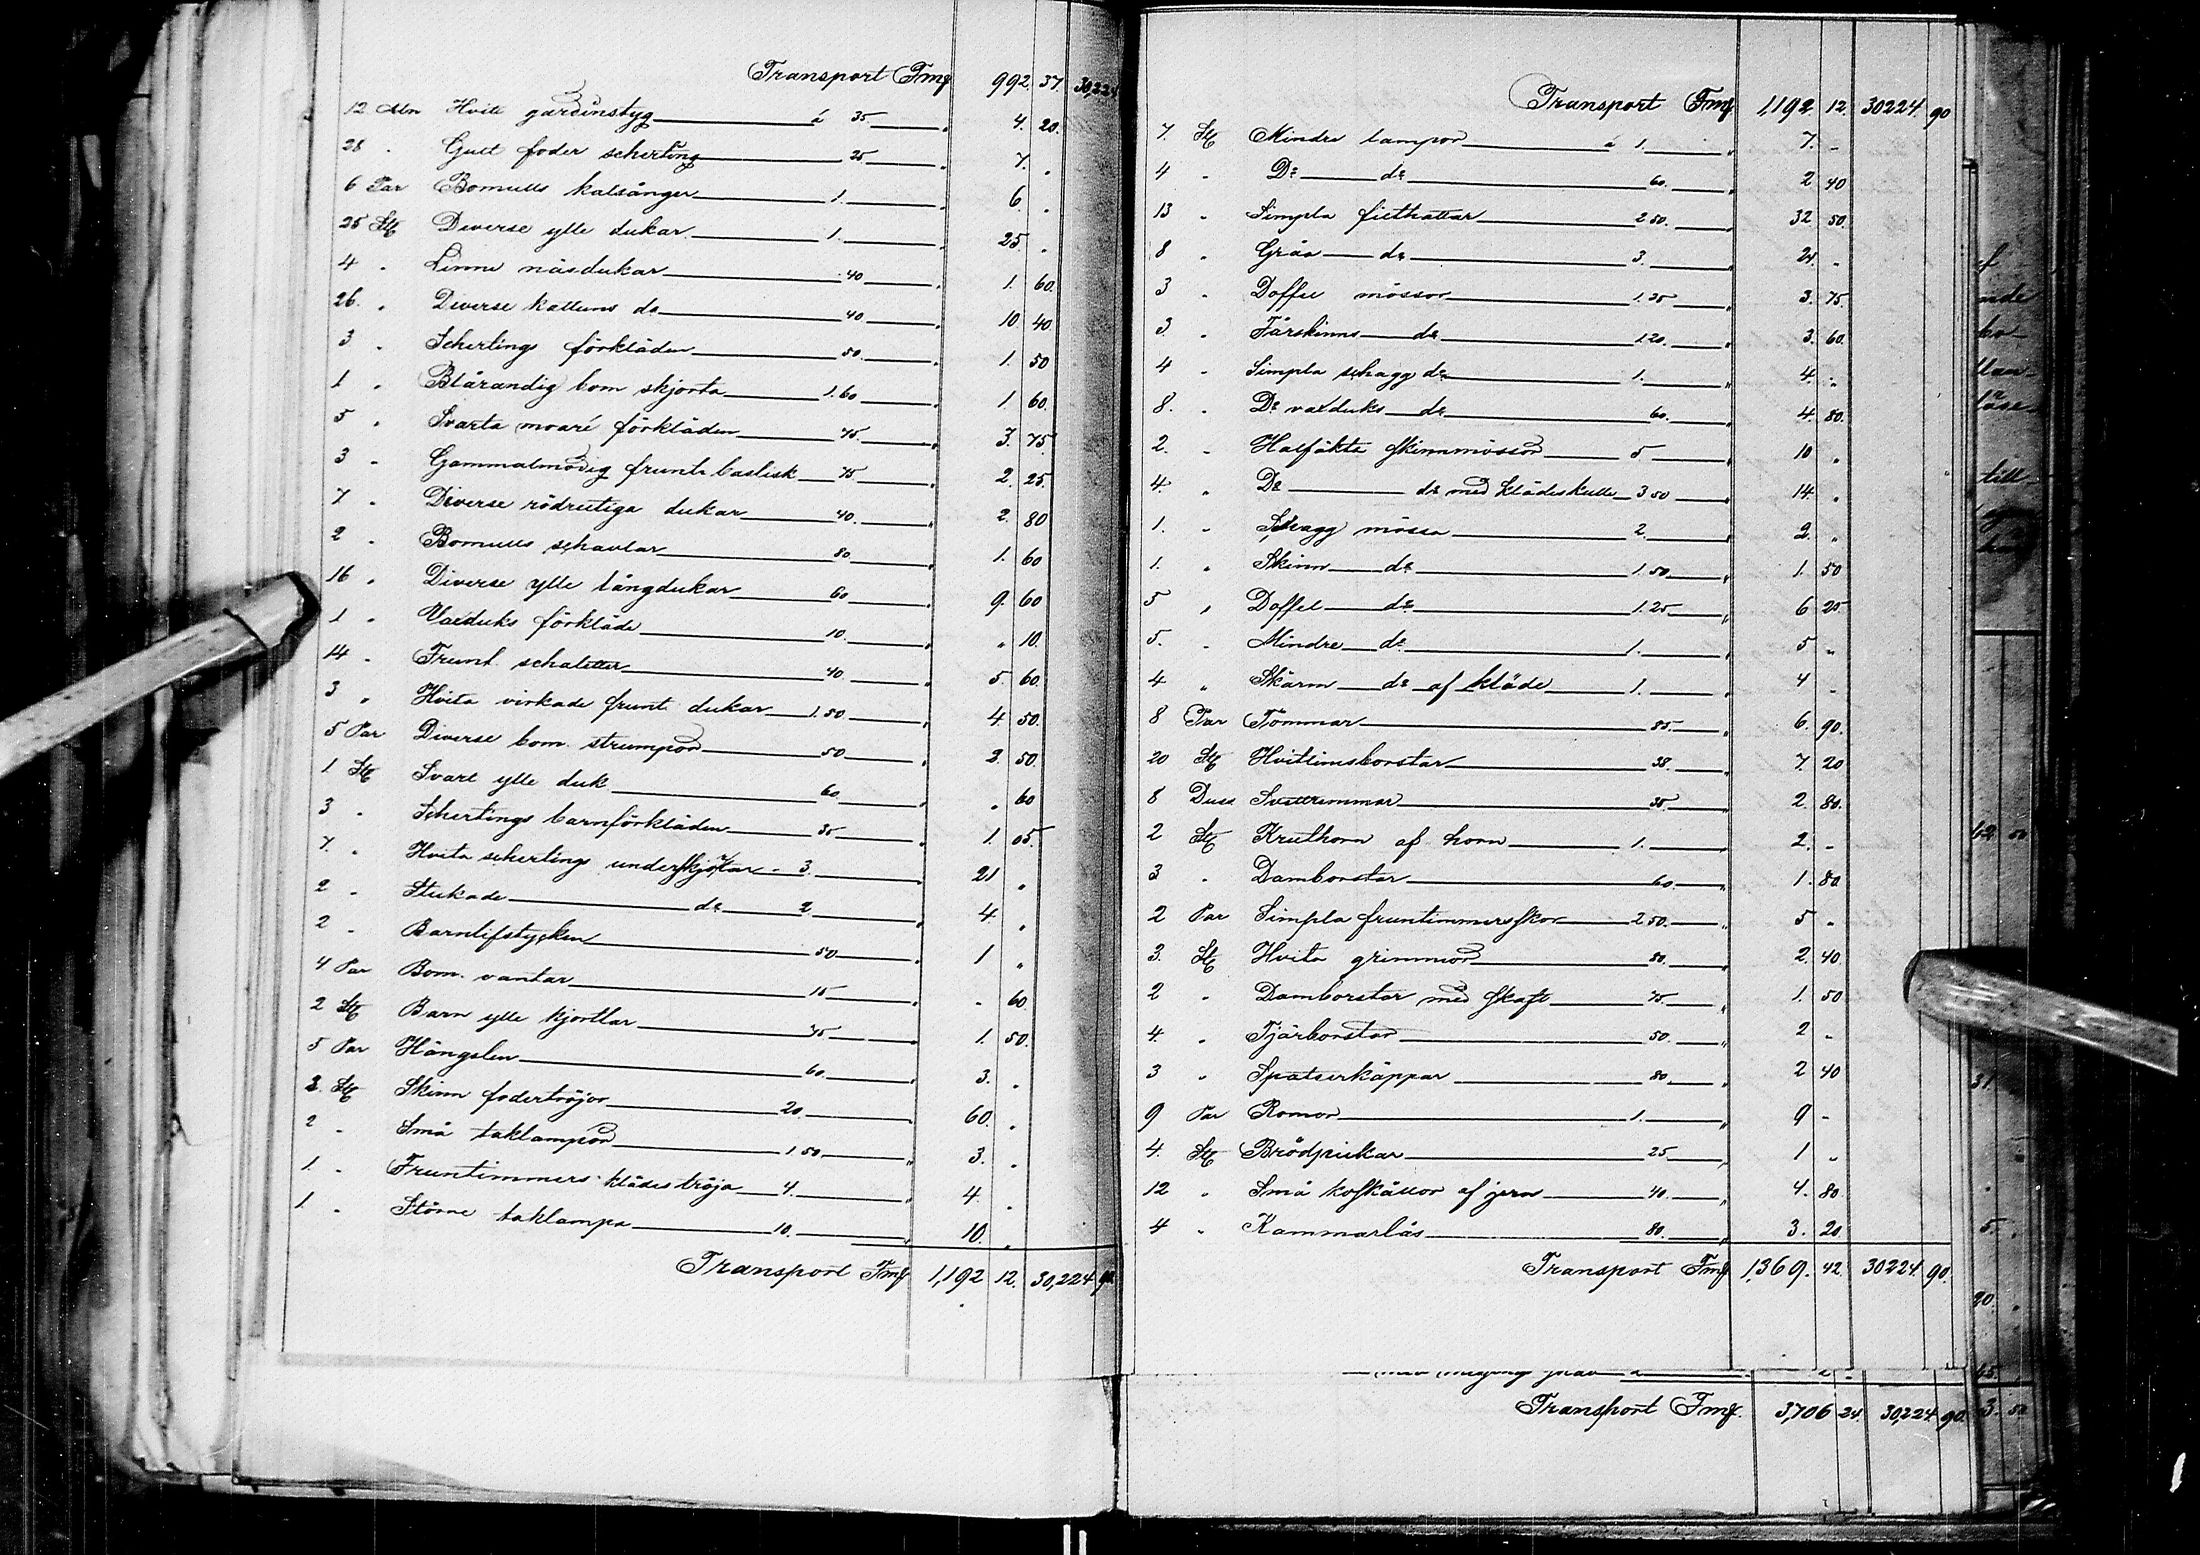 Transport Fmk 992. 37. 30,224
12 Aln Hvitt gardinstyg á 35. " 4. 20.
28 " Gult foder scherting 25 " 7. "
6 Par Bomulls kalsånger 1. " 6. "
25 St Diverse ylle dukar 1. " 25. "
4 " Linne näsdukar 40 " 1. 60.
26. " Diverse kattuns do 40 " 10. 40
3 " Schertings förkläden 50. " 1. 50
1 " Blårandig bom skjorta 1.60 " 1. 60.
5 " Svarta moaré förkläden 75. " 3. 75.
3 " Gammalmodig frunt. baslisk 75 " 2. 25.
7 " Diverse rödrutiga dukar 40. " 2. 80
2 " Bomulls schavlar 80 " 1. 60
16 " Diverse ylle långdukar 60 " 9. 60
1 " Vaxduks förkläde 10. " " 10.
14 " Frunt. schaletter 40 " 5. 60.
3 " Hvita virkade frunt. dukar 1.50 " 4. 50.
5 Par Diverse bom. strumpor 50 " 2. 50.
1 St Svart ylle duk 60 " " 60
3 " Schertings barnförkläden 35 " 1. 05.
7. " Hvita schertings underskjortar 3. " 21 "
2 " Stukade do 2 " 4. "
2 " Barnlifstycken 50 " 1 "
4 Par Bom. vantar 15 " " 60
2 St Barn ylle kjortlar 75 " 1. 50.
5 Par Hängslen 60 " 3. "
3. St Skinn fodertröjor 20. " 60. "
2 " Små taklampor 1.50 " 3. "
1. " Fruntimmers klädes tröja 4. " 4. "
1. " Större taklampa 10. " 10. "
Transport Fmk 1,192 12. 30,224 90.
Transport Fmk 1,192. 12. 30224 90
7. St Mindre lampor á 1. " 7. "
4 " Do do 60. " 2 40
13 " Simpla filthattar 2 50. " 32 50.
8 " Gråa do 3. " 24. "
3 " Doffel mössor 1.25 " 3. 75.
3. " Fårskinns do 1.20. " 3. 60.
4 " Simpla schagg do 1. " 4. "
8. " Do vaxduks do 60. " 4. 80.
2. " Halfäkta skinnmössor 5. " 10 "
4. " Do do med klädeskulle 3 50 " 14. "
1. " Schagg mössa 2. " 2. "
1. " Skinn do 1.50. " 1. 50
5 " Doffel do 1.25 " 6 25
5. " Mindre do 1. " 5 "
4 " Skärm do af kläde 1. " 4 "
8 Par Tömmar 85. " 6. 90.
20 St Hvitlimsborstar 38. " 7. 20
8 Duss Svettremmar 35. " 2. 80.
2 St Kruthorn af horn 1. " 2. "
3 " Damborstar 60 " 1. 80
2 Par Simpla fruntimmersskor 2 50. " 5 "
3. St Hvita grimmor 80. " 2. 40.
2 " Damborstar med skaft 75 " 1. 50
4. " Tjärborstar 50. " 2 "
3 " Spatserkäppar 80 " 2 40
9 Par Romor 1. " 9 "
4. St Brödpickar 25 " 1 "
12 " Små kofskällor af jern 40. " 4. 80
4 " Kammarlås 80. " 3. 20
Transport Fmk 1,369. 42. 30224. 90.
Transport Fmk. 3,706 24. 30,224 90